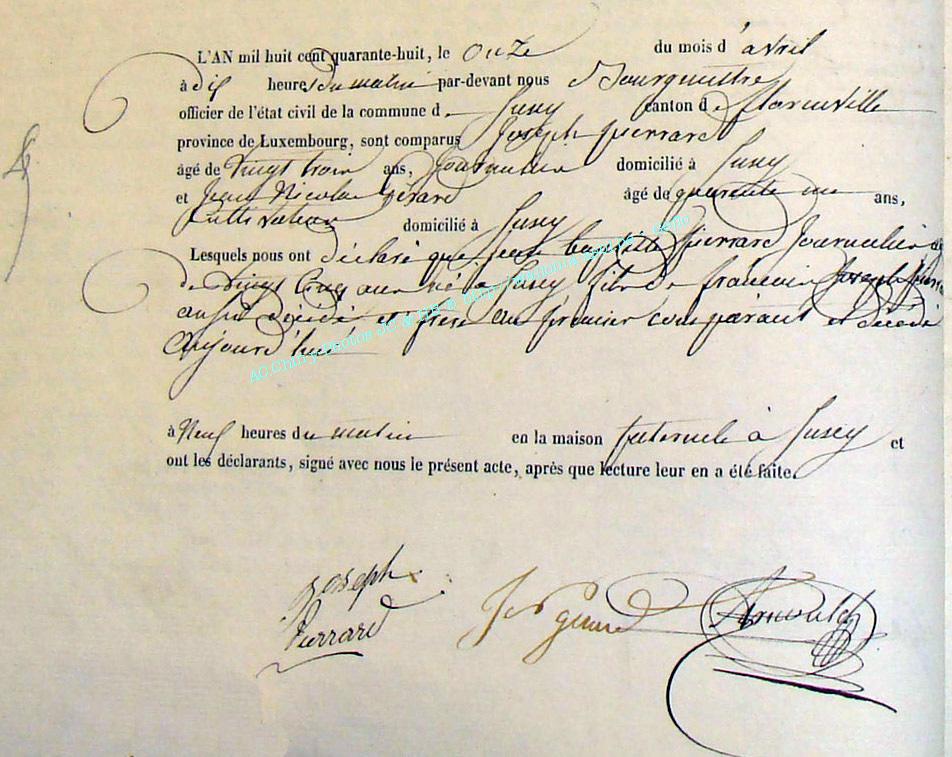 L'AN mil huit cent quarante-huit, le onze du mois d'avril
à dix heures du matin par-devant nous Bourgmestre
officier de l'état civil de la commune d. Jusey canton de florenville
province de Luxembourg, sont comparus Joseph pierrard
âgé de Vingt trois ans, journalier domicilié à Jusey
et Jean Nicolas Gérard âgé de quarante un ans,
Cultivateur domicilié à Jusey
Lesquels nous ont déclaré que jean baptiste pierrard Journalier
de Vingt Cinq ans né à Jusey fils de françois Joseph
décédé et frère au premier comparant et décédé
aujourd'hui
à Neuf heures du matin en la maison paternele à Jusey et
ont les déclarants, signé avec nous le présent acte, après que lecture leur en a été faite.
Joseph
Pierrard